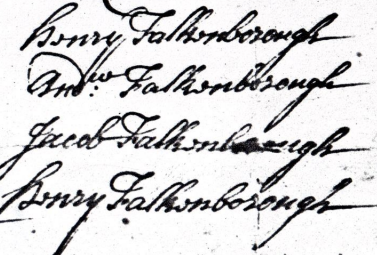 Henry Falkenborough
And.w Falkenborough
Jacob Falkenborough
Henry Falkenborough